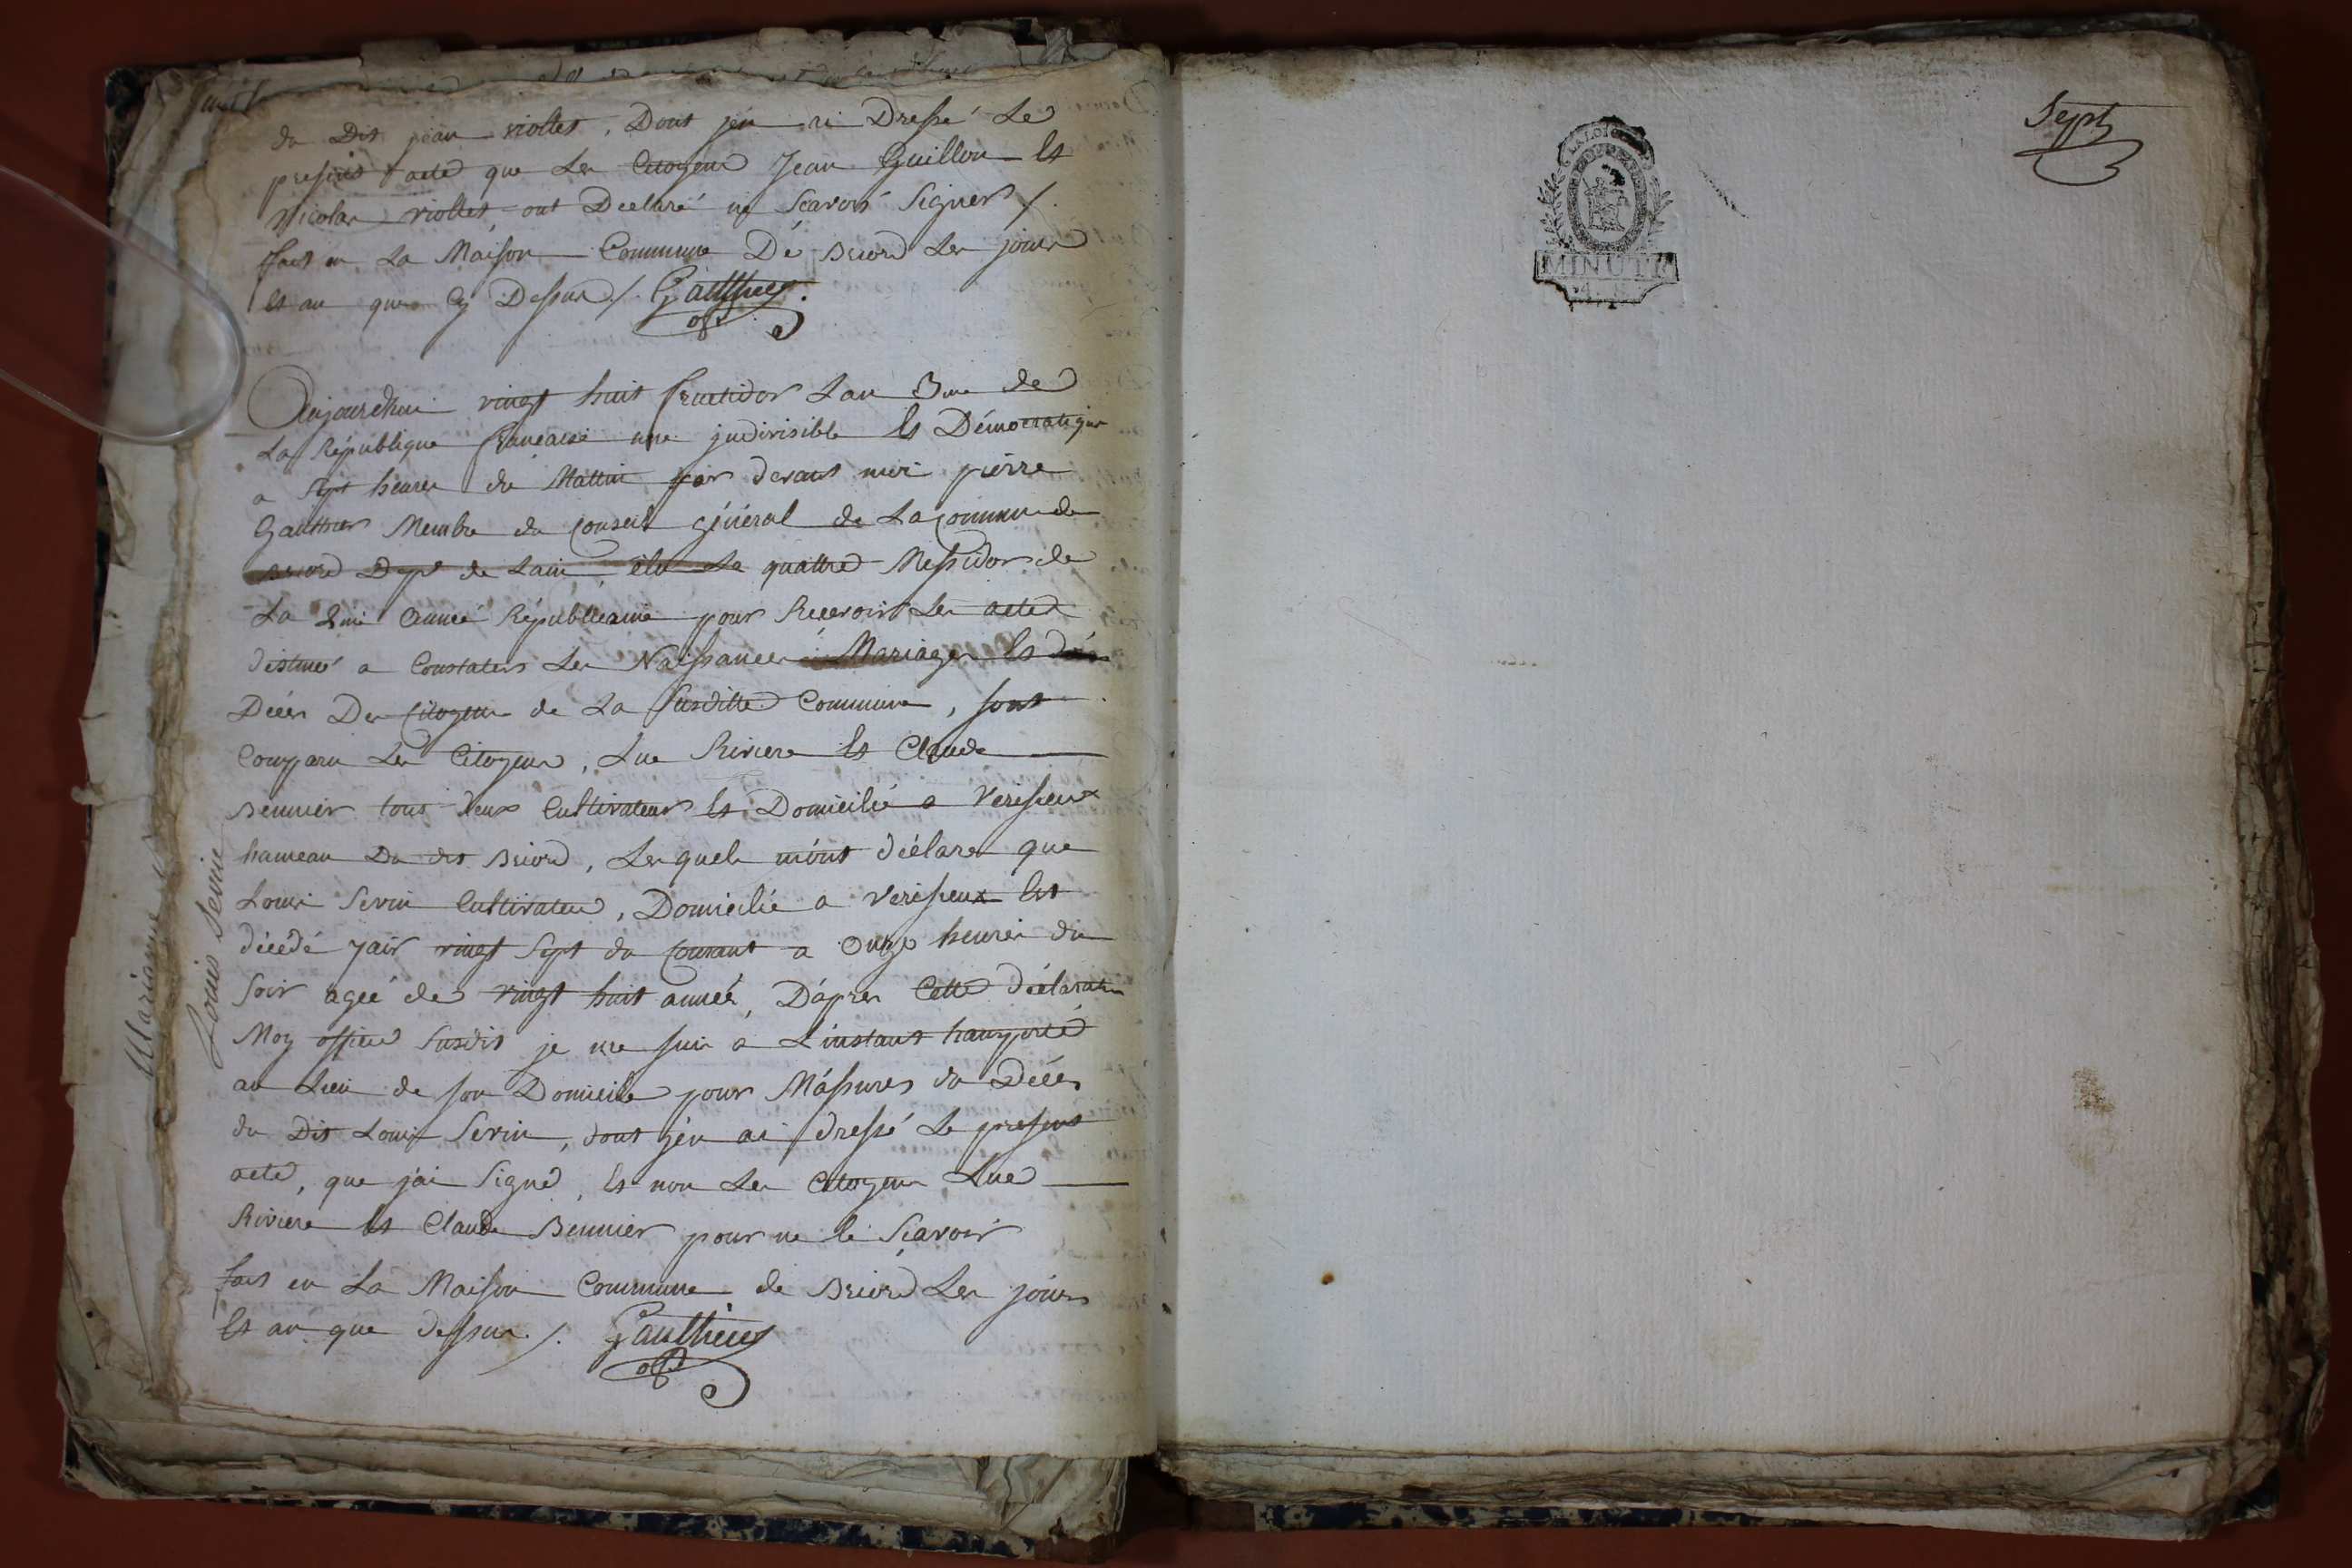 du Dit jean viollet, Dont jén ai Dressé Le
present acte que Les Citoyens Jean Guillon Et
Nicolas viollet ont Declaré ne Scavoir Signer /.
fait en La Maison Commune De Briord Les jours
Et an que Cy Dessus /. Gauthier
off.
Aujourdhui vingt huit fructidor L'an 3me de
La République francaise une jndivisible Et Démocratique
a Sept heures du Mattin par devant moi pierre
Gauthier Membre du Conseil général de La Commune de
Briord Dept de Lain, élu Le quattre Messidor de
La 2me Année Républicaine pour Recevoir Les actes
destiné a Constater Les Naissances Mariages Et
Décès Des Citoyens de La Susditte Commune, sont
Comparu Les Citoyens, Luc Riviere Et Claude
Bennier tous deux Cultivateurs Et Domicilié a Verisieux
hameau Du dit Briord, Les quels mónt déclarer que
Louis Servin Cultivateur, Domicilié a Verisieux Est
décédé yair vingt Sept du Courant a Onze heures du
Soir ageé de vingt huit année, D'áprès Cette déclaration
Moy officier Susdit je me suis a L'instant transporté
au Lieu de son Domicile pour M'ássurer du Décès
du Dit Louis Servin, dont jén ai dressé Le present
acte, que j'ai Signé, Et non Les Citoyens Luc
Riviere Et Claude Bennier pour ne le Scavoir
fait en La Maison Commune de Briord Les jours
Et an que dessus. /. Gauthier
off.
Louis Servin
Marianne
Sept
LA LOI
MINUTE